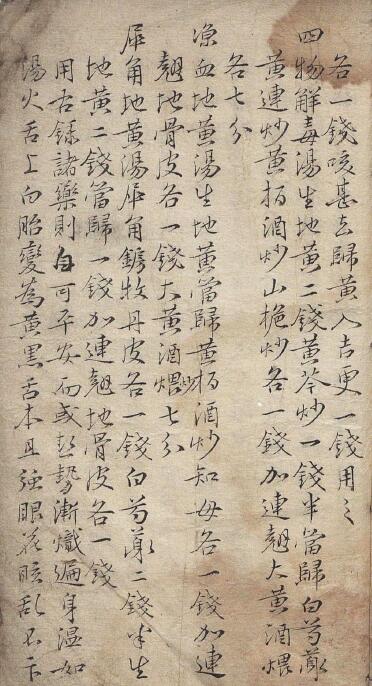 各一錢咳甚去歸黃入吉更一錢用之
四物解毒湯生地黃二錢黃芩炒一錢半當歸白芍藥
黃連炒黃栢酒炒山梔炒各一錢加連翹大黃酒煨
各七分
凉血地黃湯生地黃當歸黃栢酒炒知母各一錢加連
翹地骨皮各一錢大黃酒煨七分
犀角地黃湯犀角鎊牧丹皮各一錢白芍藥二錢半生
地黃二錢當歸一錢加連翹地骨皮各一錢
用右錄諸藥則自可平安而或熱勢漸熾遍身温如
湯火舌上白胎變爲黃黑舌本且強眼花眩乱不下